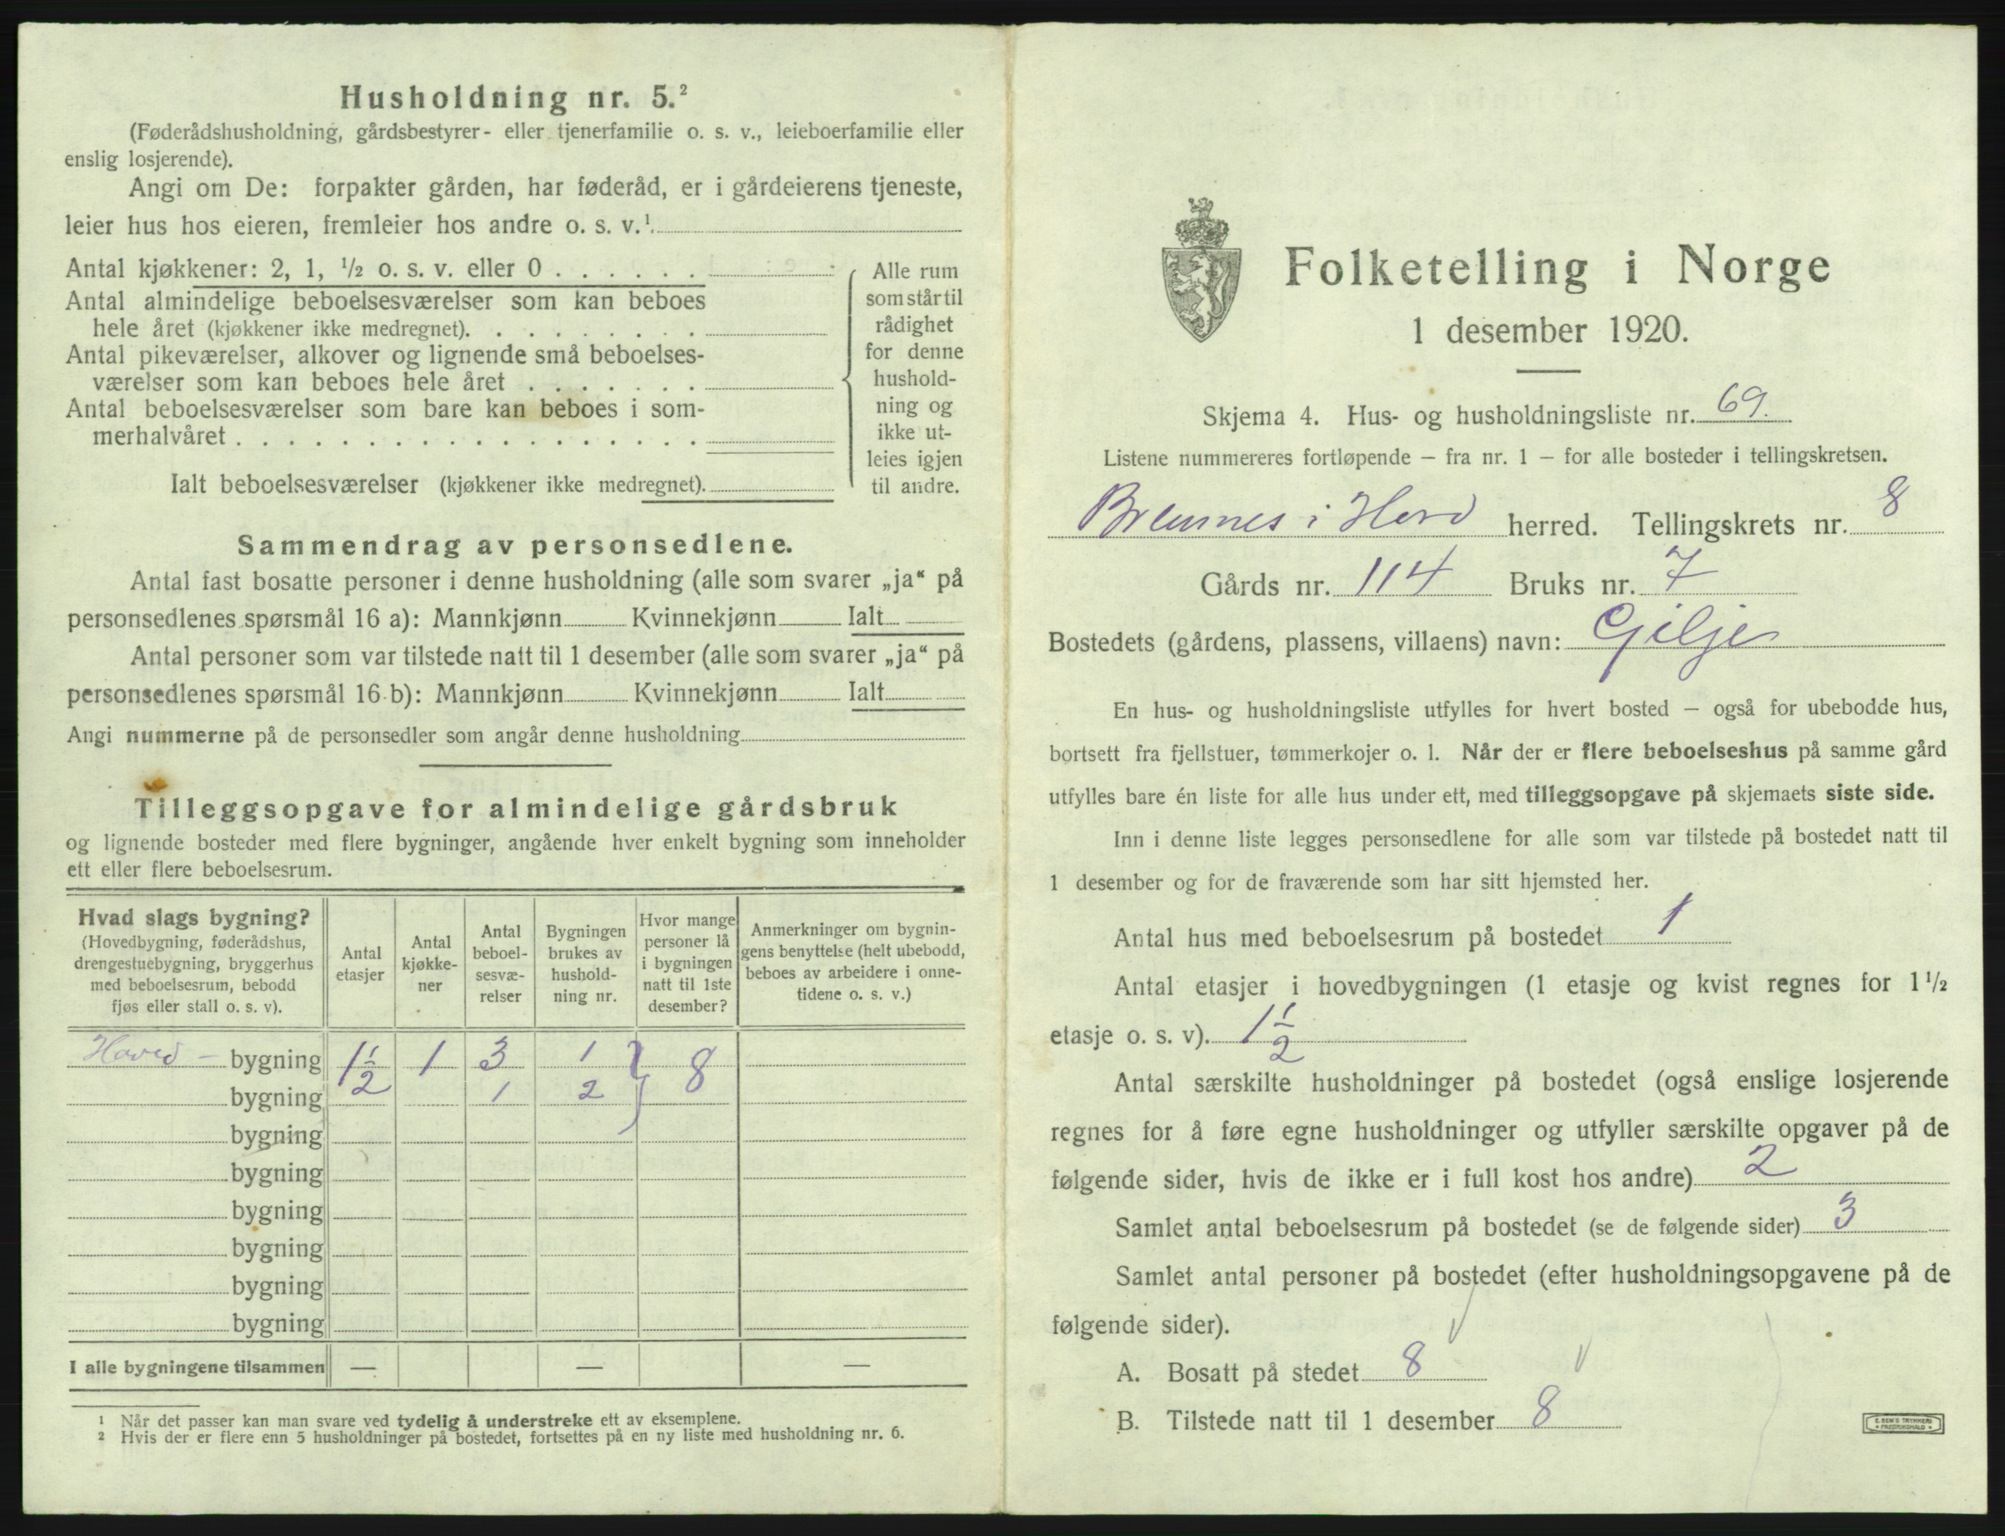 Husholdning nr. 5.²
(Føderådshusholdning, gårdsbestyrer- eller tjenerfamilie o. s. v., leieboerfamilie eller
enslig losjerende).
Angi om De: forpakter gården, har føderåd, er i gårdeierens tjeneste,
leier hus hos eieren, fremleier hos andre o. s. v.¹
Antal kjøkkener: 2, 1, ½ o. s. v. eller 0 . . . . . .
Antal almindelige beboelsesværelser som kan beboes
hele året (kjøkkener ikke medregnet). . . . . . . . .
Antal pikeværelser, alkover og lignende små beboelses-
værelser som kan beboes hele året . . . . . . .
Antal beboelsesværelser som bare kan beboes i som-
merhalvåret . . . . . . . . . . . . . . . . . .
Ialt beboelsesværelser (kjøkkener ikke medregnet).
Alle rum
som står til
rådighet
for denne
hushold-
ning og
ikke ut-
leies igjen
til andre.
Sammendrag av personsedlene.
Antal fast bosatte personer i denne husholdning (alle som svarer „ja“ på
personsedlenes spørsmål 16 a): Mannkjønn Kvinnekjønn Ialt
Antal personer som var tilstede natt til 1 desember (alle som svarer „ja“ på
personsedlenes spørsmål 16 b): Mannkjønn Kvinnekjønn Ialt
Angi nummerne på de personsedler som angår denne husholdning
Tilleggsopgave for almindelige gårdsbruk
og lignende bosteder med flere bygninger, angående hver enkelt bygning som inneholder
ett eller flere beboelsesrum.
Hvad slags bygning?
(Hovedbygning, føderådshus,
drengestuebygning, bryggerhus
med beboelsesrum, bebodd
fjøs eller stall o. s. v).
Antal
etasjer
Antal
kjøkke-
ner
Antal
beboel-
sesvæ-
relser
Bygningen
brukes av
hushold-
ning nr.
Hvor mange
personer lå
i bygningen
natt til 1ste
desember?
Anmerkninger om bygnin-
gens benyttelse (helt ubebodd,
beboes av arbeidere i onne-
tidene o. s. v.)
Hoved- bygning 1½ 1 3 1 } 8
bygning 1 2
bygning
bygning
bygning
bygning
bygning
bygning
I alle bygningene tilsammen — — —
¹ Når det passer kan man svare ved tydelig å understreke ett av eksemplene.
² Hvis der er flere enn 5 husholdninger på bostedet, fortsettes på en ny liste med husholdning nr. 6.
Folketelling i Norge
1 desember 1920.
Skjema 4. Hus- og husholdningsliste nr. 69.
Listene nummereres fortløpende – fra nr. 1 – for alle bosteder i tellingskretsen.
Bremnes i Hord herred. Tellingskrets nr. 8
Gårds nr. 114 Bruks nr. 7
Bostedets (gårdens, plassens, villaens) navn: Gilje
En hus- og husholdningsliste utfylles for hvert bosted – også for ubebodde hus,
bortsett fra fjellstuer, tømmerkojer o. l. Når der er flere beboelseshus på samme gård
utfylles bare én liste for alle hus under ett, med tilleggsopgave på skjemaets siste side.
Inn i denne liste legges personsedlene for alle som var tilstede på bostedet natt til
1 desember og for de fraværende som har sitt hjemsted her.
Antal hus med beboelsesrum på bostedet 1
Antal etasjer i hovedbygningen (1 etasje og kvist regnes for 1½
etasje o. s. v). 1½
Antal særskilte husholdninger på bostedet (også enslige losjerende
regnes for å føre egne husholdninger og utfyller særskilte opgaver på de
følgende sider, hvis de ikke er i full kost hos andre) 2
Samlet antal beboelsesrum på bostedet (se de følgende sider) 3
Samlet antal personer på bostedet (efter husholdningsopgavene på de
følgende sider).
A. Bosatt på stedet 8
B. Tilstede natt til 1 desember 8